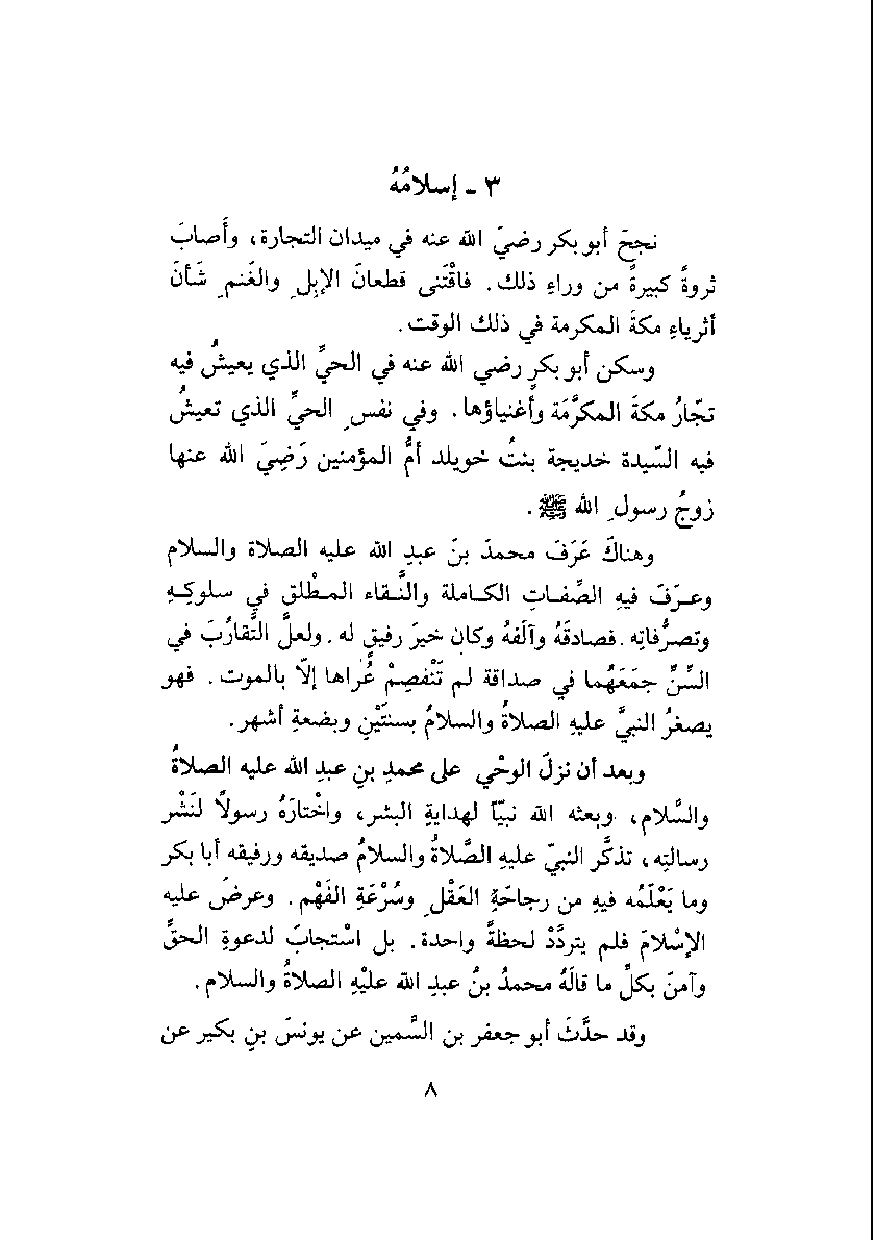 ٣ ـ إسلامُهُ
نجحَ أبو بكر رضيَ الله عنه في ميدان التجارة، وأَصابَ
ثروةً كبيرةً من وراءِ ذلك. فاقْتَنى قطعانَ الإبِلِ والغَنمِ شَأنَ
أثرياءِ مكةَ المكرمة في ذلك الوقت.
وسكن أبو بكرٍ رضي الله عنه في الحيِّ الذي يعيشُ فيه
تجّارُ مكةَ المكرَّمَة وأغنياؤها. وفي نفسِ الحيِّ الذي تعيشُ
فيه السيّدة خديجة بنتُ خويلد أمُّ المؤمنين رَضِيَ الله عنها
زوجُ رسولِ الله ﷺ.
وهناكَ عَرَفَ محمدَ بنَ عبدِ الله عليه الصلاة والسلام
وعـرَفَ فيهِ الصِّفـاتِ الكـاملة والنَّـقاء المـطْلق في سلوكِـهِ
وتصرُّفاتِه. فصادقَهُ وآلَفهُ وكان خيرَ رفيقٍ له. ولعلَّ التَّقارُبَ في
السِّنِّ جمَعَهُما في صداقة لم تَنْفصِمْ عُراها إلّا بالموت. فهو
يصغرُ النبيَّ عليهِ الصلاةُ والسلامُ بسنتَيْنِ وبضعةِ أشهر.
وبعد أن نزلَ الوحْي على محمدِ بنِ عبدِ الله عليه الصلاةُ
والسَّلام، وبعثه الله نبيّاً لهدايةِ البشر، واخْتارَهُ رسولاً لنَشْر
رسالتِه، تذكَّر النبيّ عليهِ الصَّلاةُ والسلامُ صديقه ورفيقه أبا بكر
وما يَعْلَمُه فيهِ من رجاحَةِ العَقْلِ وسُرْعَةِ الفَهْم. وعرضَ عليه
الإسْلامَ فلم يتردَّدْ لحظةً واحدة. بل اسْتجابَ لدعوةِ الحقِّ
وآمنَ بكلِّ ما قالَهُ محمدُ بنُ عبدِ الله عليْهِ الصلاةُ والسلام.
وقد حدَّثَ أبو جعفر بن السَّمين عن يونسَ بنِ بكير عن
٨